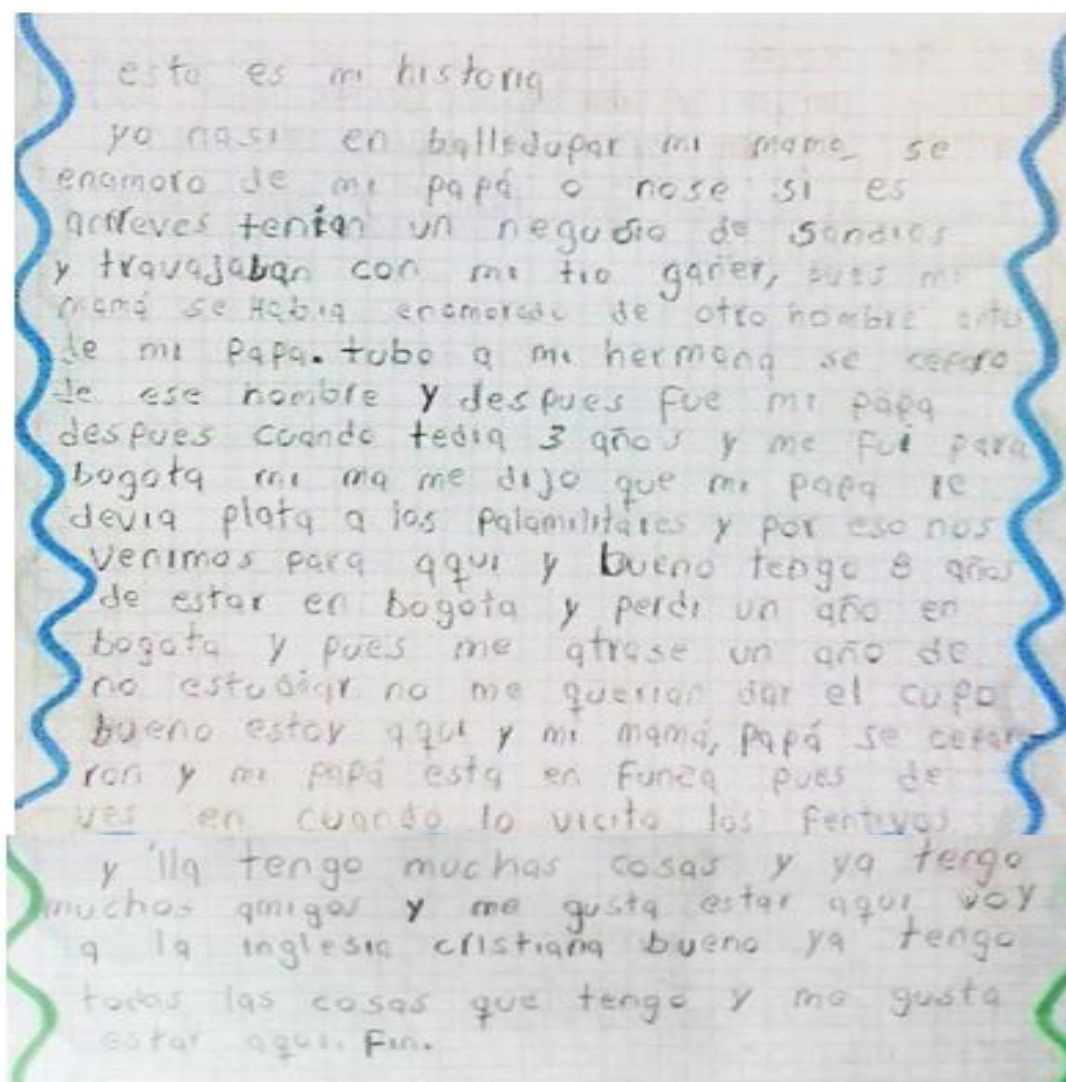 esta es mi historia
yo nasi en balledupar mi mama se
enamoro de mi papá o nose si es
alreves tenian un negosio de sandias
y travajaban con mi tio garier, pues mi
mamá se Habia enamorado de otro hombre antes
de mi Papa. tubo a mi hermana se separo
de ese hombre y despues fue mi papa
despues cuando tedia 3 años y me fui para
bogota mi ma me dijo que mi papa le
devia plata a los palamilitares y por eso nos
venimos para aqui y bueno tengo 8 años
de estar en bogota y perdi un año en
bogota y pues me atrase un año de
no estudiar no me querian dar el cupo
bueno estoy aqui y mi mamá, papá se cepar
ron y mi papá esta en Funza pues de
ves en cuando lo vicito los fentivos
y lla tengo muchas cosas y ya tengo
muchos amigos y me gusta estar aqui voy
a la inglesia cristiana bueno ya tengo
todas las cosas que tengo y me gusta
estar aqui. Fin.